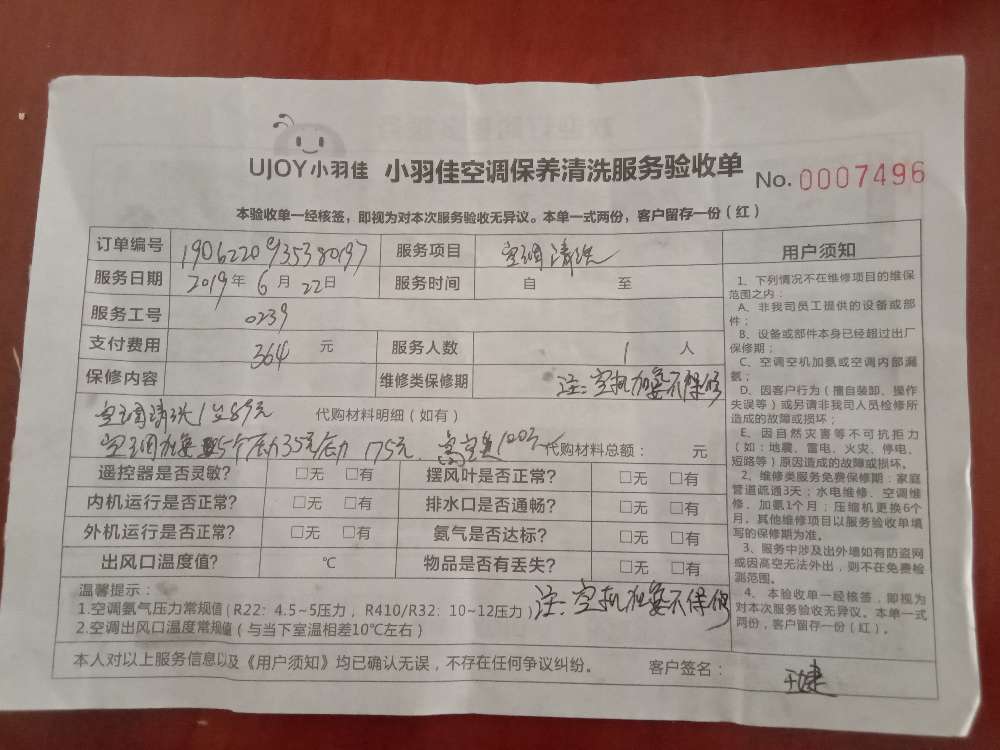 UJOY小羽佳 小羽佳空调保养清洗服务验收单 No. 0007496
本验收单一经核签，即视为对本次服务验收无异议。本单一式两份，客户留存一份（红）
订单编号 1906220935380197 服务项目 空调清洗
服务日期 2019年 6月 22日 服务时间 自 至
服务工号 0239
支付费用 364 元 服务人数 1 人
保修内容 维修类保修期 注:空机加氨不保修
空调清洗1台89元 代购材料明细（如有）
空调加氨 5个压力35元/压力 175元. 高空费100元 代购材料总额： 元
遥控器是否灵敏? □无 □有 摆风叶是否正常? □无 □有
内机运行是否正常? □无 □有 排水口是否通畅? □无 □有
外机运行是否正常? □无 □有 氨气是否达标? □无 □有
出风口温度值? ℃ 物品是否有丢失? □无 □有
温馨提示：
1.空调氨气压力常规值（R22：4.5~5压力，R410/R32：10~12压力）注:空机加氨不保修
2.空调出风口温度常规值（与当下室温相差10℃左右）
本人对以上服务信息以及《用户须知》均已确认无误，不存在任何争议纠纷。 客户签名： 王建
用户须知
1、下列情况不在维修项目的维保
范围之内：
A、非我司员工提供的设备或部
件；
B、设备或部件本身已经超过出厂
保修期；
C、空调空机加氨或空调内部漏
氨；
D、因客户行为（擅自装卸、操作
失误等）或另请非我司人员检修所
造成的故障或损坏；
E、因自然灾害等不可抗拒力
（如：地震、雷电、火灾、停电、
短路等）原因造成的故障或损坏。
2、维修类服务免费保修期：家庭
管道疏通3天；水电维修、空调维
修、加氨1个月；压缩机更换6个
月。其他维修项目以服务验收单填
写的保修期为准。
3、服务中涉及出外墙如有防盗网
或因高空无法外出，则不在免费检
测范围。
4、本验收单一经核签，即视为
对本次服务验收无异议。本单一式
两份，客户留存一份（红）。